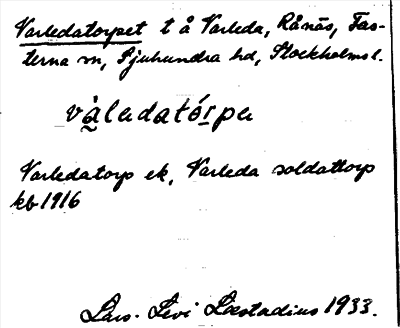 Varledatorpet t å Varleda, Rånäs, Fas-
terna sn, Sjuhundra hd, Stockholms l.
vàladatórpa
Varledatorp ek, Varleda soldattorp
kb 1916
Lars-Levi Læstadius 1933.